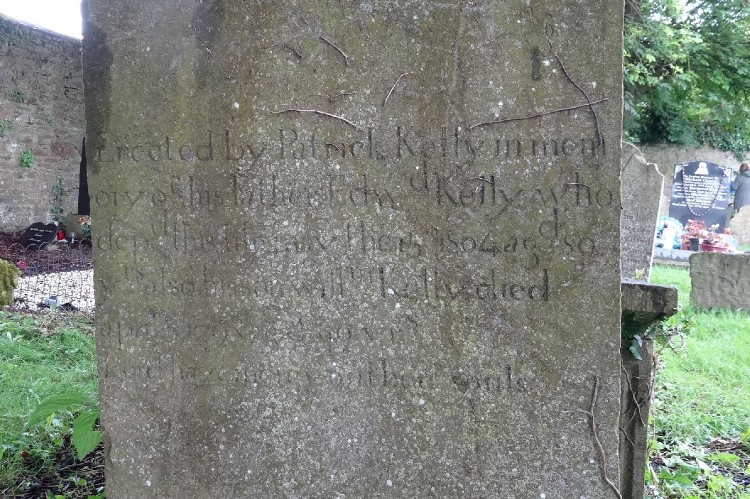 Erected by Patrick Kelly in mem
ory of his Father Edwd Kelly who
depd this life may the 1804 agd 80
yrs also his son Willm Kelly died
april
Lord have mercy on their souls